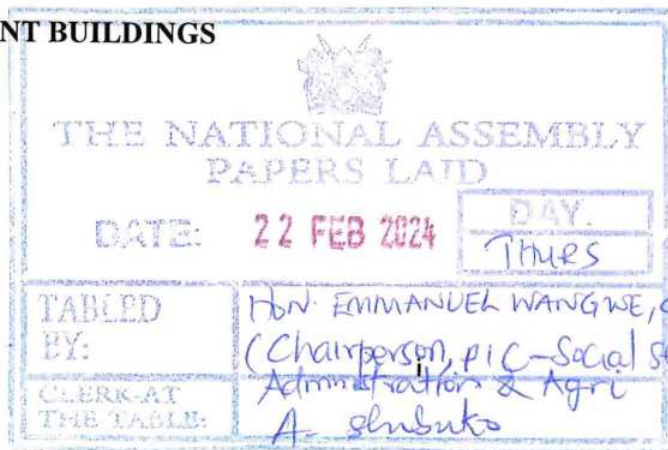 NT BUILDINGS
THE NATIONAL ASSEMBLY
PAPERS LAID
DATE: 22 FEB 2024
DAY.
THURS
TABLED BY:
HON. EMMANUEL WANGWE,
(Chairperson, PIC-Social S
Administration & Agri
CLERK-AT THE TABLE:
A.